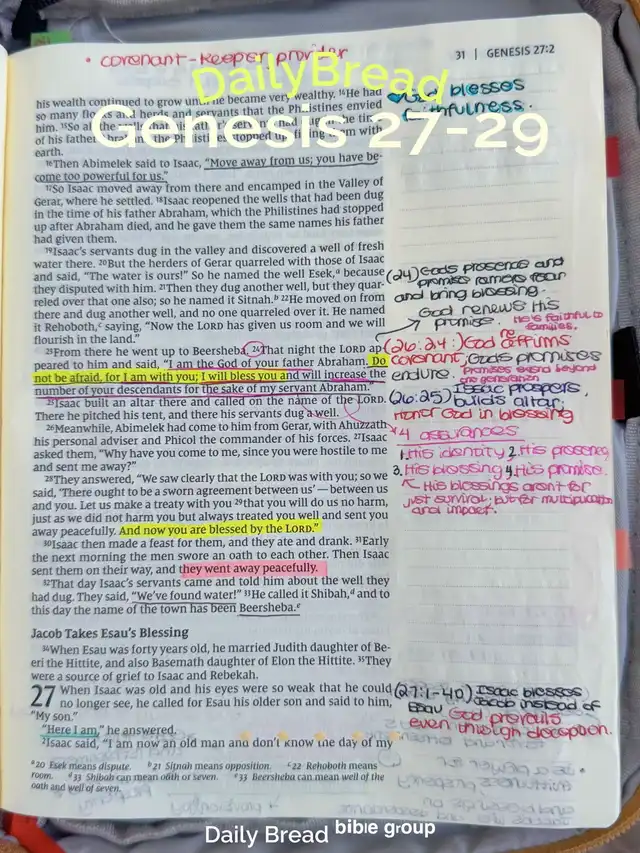 • covenant-keeper, provider
31 | GENESIS 27:2
DailyBread
Genesis 27-29
blesses
faithfulness.
his wealth continued to grow until he became very wealthy. 14He had
so many flocks and herds and servants that the Philistines envied
him. 15So all the wells that his father's servants had dug in the time
of his father Abraham, the Philistines stopped up, filling them with
earth.
16Then Abimelek said to Isaac, "Move away from us; you have be-
come too powerful for us."
17So Isaac moved away from there and encamped in the Valley of
Gerar, where he settled. 18Isaac reopened the wells that had been dug
in the time of his father Abraham, which the Philistines had stopped
up after Abraham died, and he gave them the same names his father
had given them.
19Isaac's servants dug in the valley and discovered a well of fresh
water there. 20But the herders of Gerar quarreled with those of Isaac
and said, "The water is ours!" So he named the well Esek,a because
they disputed with him. 21Then they dug another well, but they quar-
reled over that one also; so he named it Sitnah.b 22He moved on from
there and dug another well, and no one quarreled over it. He named
it Rehoboth,c saying, "Now the LORD has given us room and we will
flourish in the land."
23From there he went up to Beersheba. 24That night the LORD ap-
peared to him and said, "I am the God of your father Abraham. Do
not be afraid, for I am with you; I will bless you and will increase the
number of your descendants for the sake of my servant Abraham."
25Isaac built an altar there and called on the name of the LORD.
There he pitched his tent, and there his servants dug a well.
26Meanwhile, Abimelek had come to him from Gerar, with Ahuzzath
his personal adviser and Phicol the commander of his forces. 27Isaac
asked them, "Why have you come to me, since you were hostile to me
and sent me away?"
28They answered, "We saw clearly that the LORD was with you; so we
said, 'There ought to be a sworn agreement between us'—between us
and you. Let us make a treaty with you 29that you will do us no harm,
just as we did not harm you but always treated you well and sent you
away peacefully. And now you are blessed by the LORD."
30Isaac then made a feast for them, and they ate and drank. 31Early
the next morning the men swore an oath to each other. Then Isaac
sent them on their way, and they went away peacefully.
32That day Isaac's servants came and told him about the well they
had dug. They said, "We've found water!" 33He called it Shibah,d and to
this day the name of the town has been Beersheba.e
Jacob Takes Esau's Blessing
34When Esau was forty years old, he married Judith daughter of Be-
eri the Hittite, and also Basemath daughter of Elon the Hittite. 35They
were a source of grief to Isaac and Rebekah.
27 When Isaac was old and his eyes were so weak that he could
no longer see, he called for Esau his older son and said to him,
"My son."
"Here I am," he answered.
2Isaac said, "I am now an old man and don't know the day of my
a20 Esek means dispute. b21 Sitnah means opposition. c22 Rehoboth means
room. d33 Shibah can mean oath or seven. e33 Beersheba can mean well of the
oath and well of seven.
(24) Gods presence and
promise remove fear
and bring blessing.
God renews His
promise. He's faithful to
families.
(26:24:) God reaffirms
covenant, God's promises
endure. Promises extend beyond
one generation
(26:25) Isaac prospers,
builds altar.
Honor God in blessing
*4 assurances
1. His identity 2. His presence
3. His blessing 4. His promise.
His blessings arent for
just survival, but for multiplication
and impact.
(27:1-40) Isaac blesses
Jacob instead of
Esau God prevails
even through deception.
Daily Bread bible group